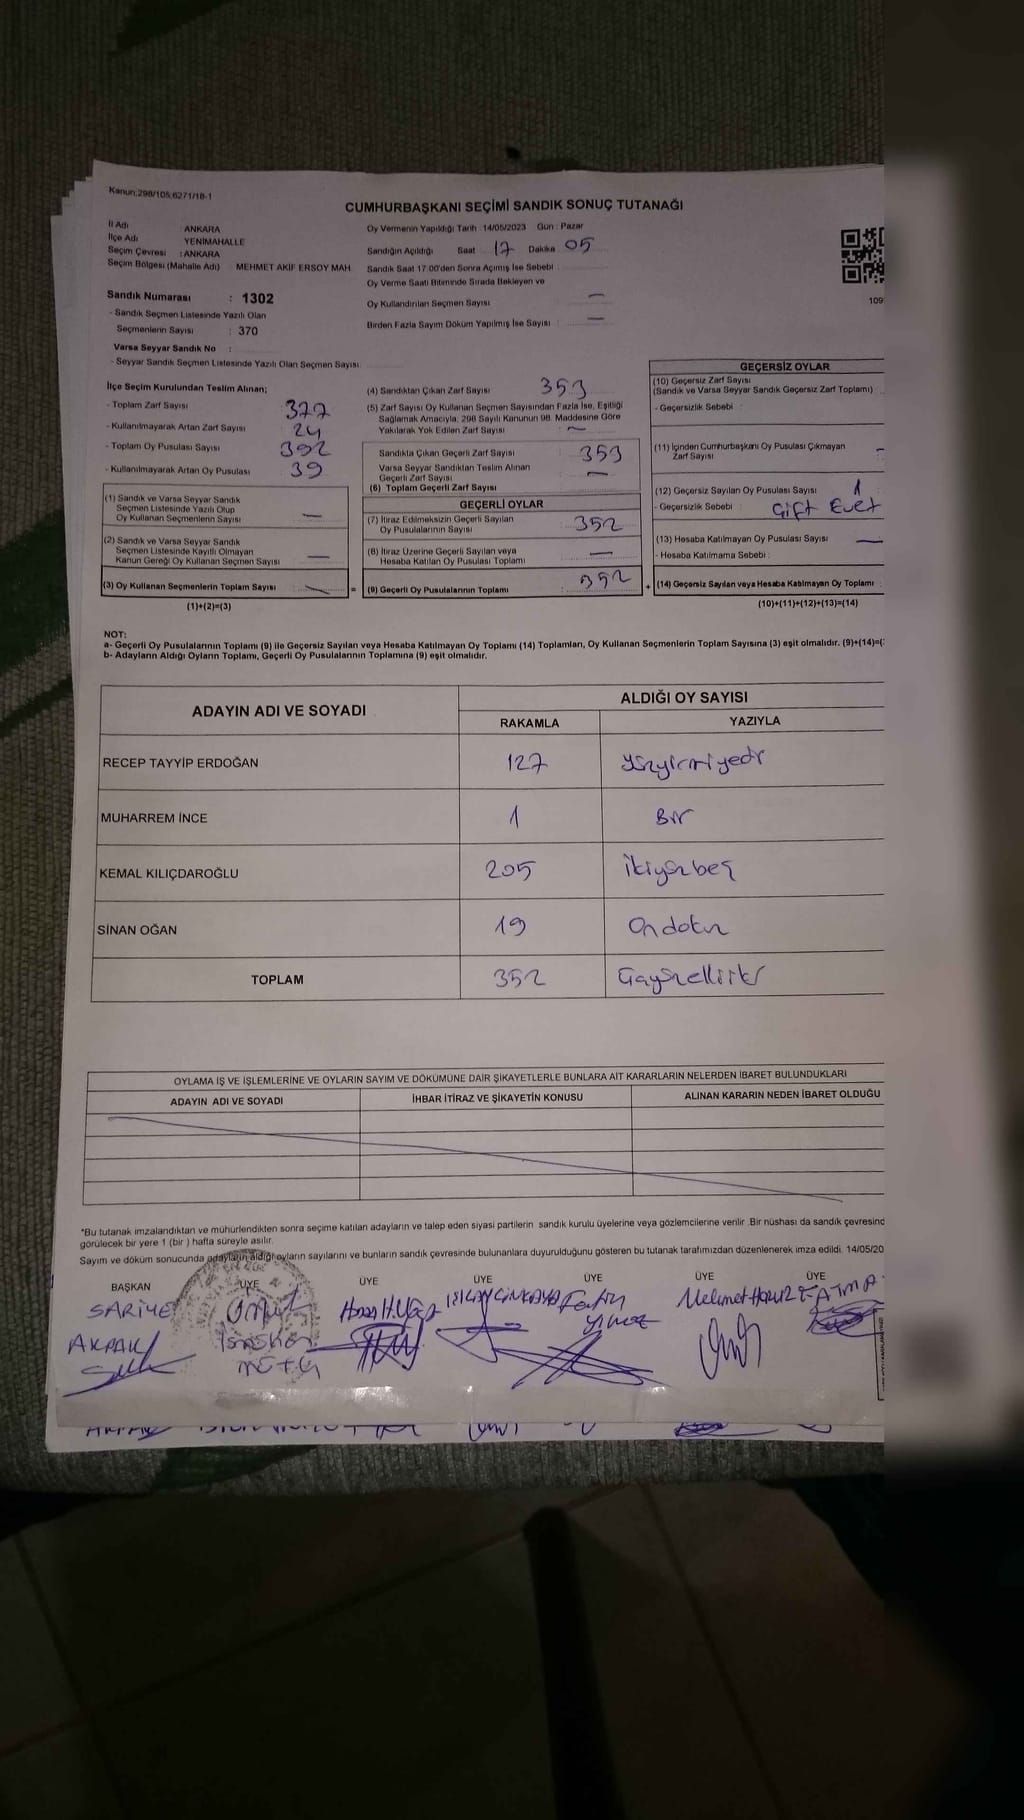 Kanun:298/105;6271/18-1
CUMHURBAŞKANI SEÇİMİ SANDIK SONUÇ TUTANAĞI
İl Adı : ANKARA
İlçe Adı : YENİMAHALLE
Seçim Çevresi : ANKARA
Seçim Bölgesi (Mahalle Adı) : MEHMET AKİF ERSOY MAH
Sandık Numarası : 1302
- Sandık Seçmen Listesinde Yazılı Olan
Seçmenlerin Sayısı : 370
Varsa Seyyar Sandık No :
- Seyyar Sandık Seçmen Listesinde Yazılı Olan Seçmen Sayısı:
Oy Vermenin Yapıldığı Tarih : 14/05/2023 Gün : Pazar
Sandığın Açıldığı Saat 17 Dakika 05
Sandık Saat 17:00'den Sonra Açımış İse Sebebi :
Oy Verme Saati Bitiminde Sırada Bekleyen ve
Oy Kullandırılan Seçmen Sayısı : —
Birden Fazla Sayım Döküm Yapılmış İse Sayısı : —
109
İlçe Seçim Kurulundan Teslim Alınan;
- Toplam Zarf Sayısı 377
- Kullanılmayarak Artan Zarf Sayısı 24
- Toplam Oy Pusulası Sayısı 392
- Kullanılmayarak Artan Oy Pusulası 39
(1) Sandık ve Varsa Seyyar Sandık
Seçmen Listesinde Yazılı Olup
Oy Kullanan Seçmenlerin Sayısı —
(2) Sandık ve Varsa Seyyar Sandık
Seçmen Listesinde Kayıtlı Olmayan
Kanun Gereği Oy Kullanan Seçmen Sayısı —
(3) Oy Kullanan Seçmenlerin Toplam Sayısı —
(1)+(2)=(3)
(4) Sandıktan Çıkan Zarf Sayısı 353
(5) Zarf Sayısı Oy Kullanan Seçmen Sayısından Fazla İse, Eşitliği
Sağlamak Amacıyla; 298 Sayılı Kanunun 98. Maddesine Göre
Yakılarak Yok Edilen Zarf Sayısı : —
Sandıkta Çıkan Geçerli Zarf Sayısı : 353
Varsa Seyyar Sandıktan Teslim Alınan
Geçerli Zarf Sayısı : —
(6) Toplam Geçerli Zarf Sayısı
GEÇERLİ OYLAR
(7) İtiraz Edilmeksizin Geçerli Sayılan
Oy Pusulalarının Sayısı : 352
(8) İtiraz Üzerine Geçerli Sayılan veya
Hesaba Katılan Oy Pusulaları Toplamı : —
= (9) Geçerli Oy Pusulalarının Toplamı : 352
GEÇERSİZ OYLAR
(10) Geçersiz Zarf Sayısı
(Sandık ve Varsa Seyyar Sandık Geçersiz Zarf Toplamı) :
- Geçersizlik Sebebi :
(11) İçinden Cumhurbaşkanı Oy Pusulası Çıkmayan
Zarf Sayısı —
(12) Geçersiz Sayılan Oy Pusulası Sayısı 1
- Geçersizlik Sebebi : Çift Evet
(13) Hesaba Katılmayan Oy Pusulası Sayısı : —
- Hesaba Katılmama Sebebi :
+ (14) Geçersiz Sayılan veya Hesaba Katılmayan Oy Toplamı :
(10)+(11)+(12)+(13)=(14)
NOT:
a- Geçerli Oy Pusulalarının Toplamı (9) ile Geçersiz Sayılan veya Hesaba Katılmayan Oy Toplamı (14) Toplamları, Oy Kullanan Seçmenlerin Toplam Sayısına (3) eşit olmalıdır. (9)+(14)=(
b- Adayların Aldığı Oyların Toplamı, Geçerli Oy Pusulalarının Toplamına (9) eşit olmalıdır.
ADAYIN ADI VE SOYADI ALDIĞI OY SAYISI
RAKAMLA YAZIYLA
RECEP TAYYİP ERDOĞAN 127 yüzyirmiyedi
MUHARREM İNCE 1 Bir
KEMAL KILIÇDAROĞLU 205 ikiyüzbeş
SİNAN OĞAN 19 Ondokuz
TOPLAM 352 Üçyüzelliiki
OYLAMA İŞ VE İŞLEMLERİNE VE OYLARIN SAYIM VE DÖKÜMÜNE DAİR ŞİKAYETLERLE BUNLARA AİT KARARLARIN NELERDEN İBARET BULUNDUKLARI
ADAYIN ADI VE SOYADI İHBAR İTİRAZ VE ŞİKAYETİN KONUSU ALINAN KARARIN NEDEN İBARET OLDUĞU
*Bu tutanak imzalandıktan ve mühürlendikten sonra seçime katılan adayların ve talep eden siyasi partilerin sandık kurulu üyelerine veya gözlemcilerine verilir .Bir nüshası da sandık çevresinde
görülecek bir yere 1 (bir ) hafta süreyle asılır.
Sayım ve döküm sonucunda adayların aldığı oyların sayılarını ve bunların sandık çevresinde bulunanlara duyurulduğunu gösteren bu tutanak tarafımızdan düzenlenerek imza edildi. 14/05/20
BAŞKAN ÜYE ÜYE ÜYE ÜYE ÜYE ÜYE
SARİYE Umut IŞILAY ÇİNKAYA Fatih Mehmet FATMA
AKPAK YILMAZ